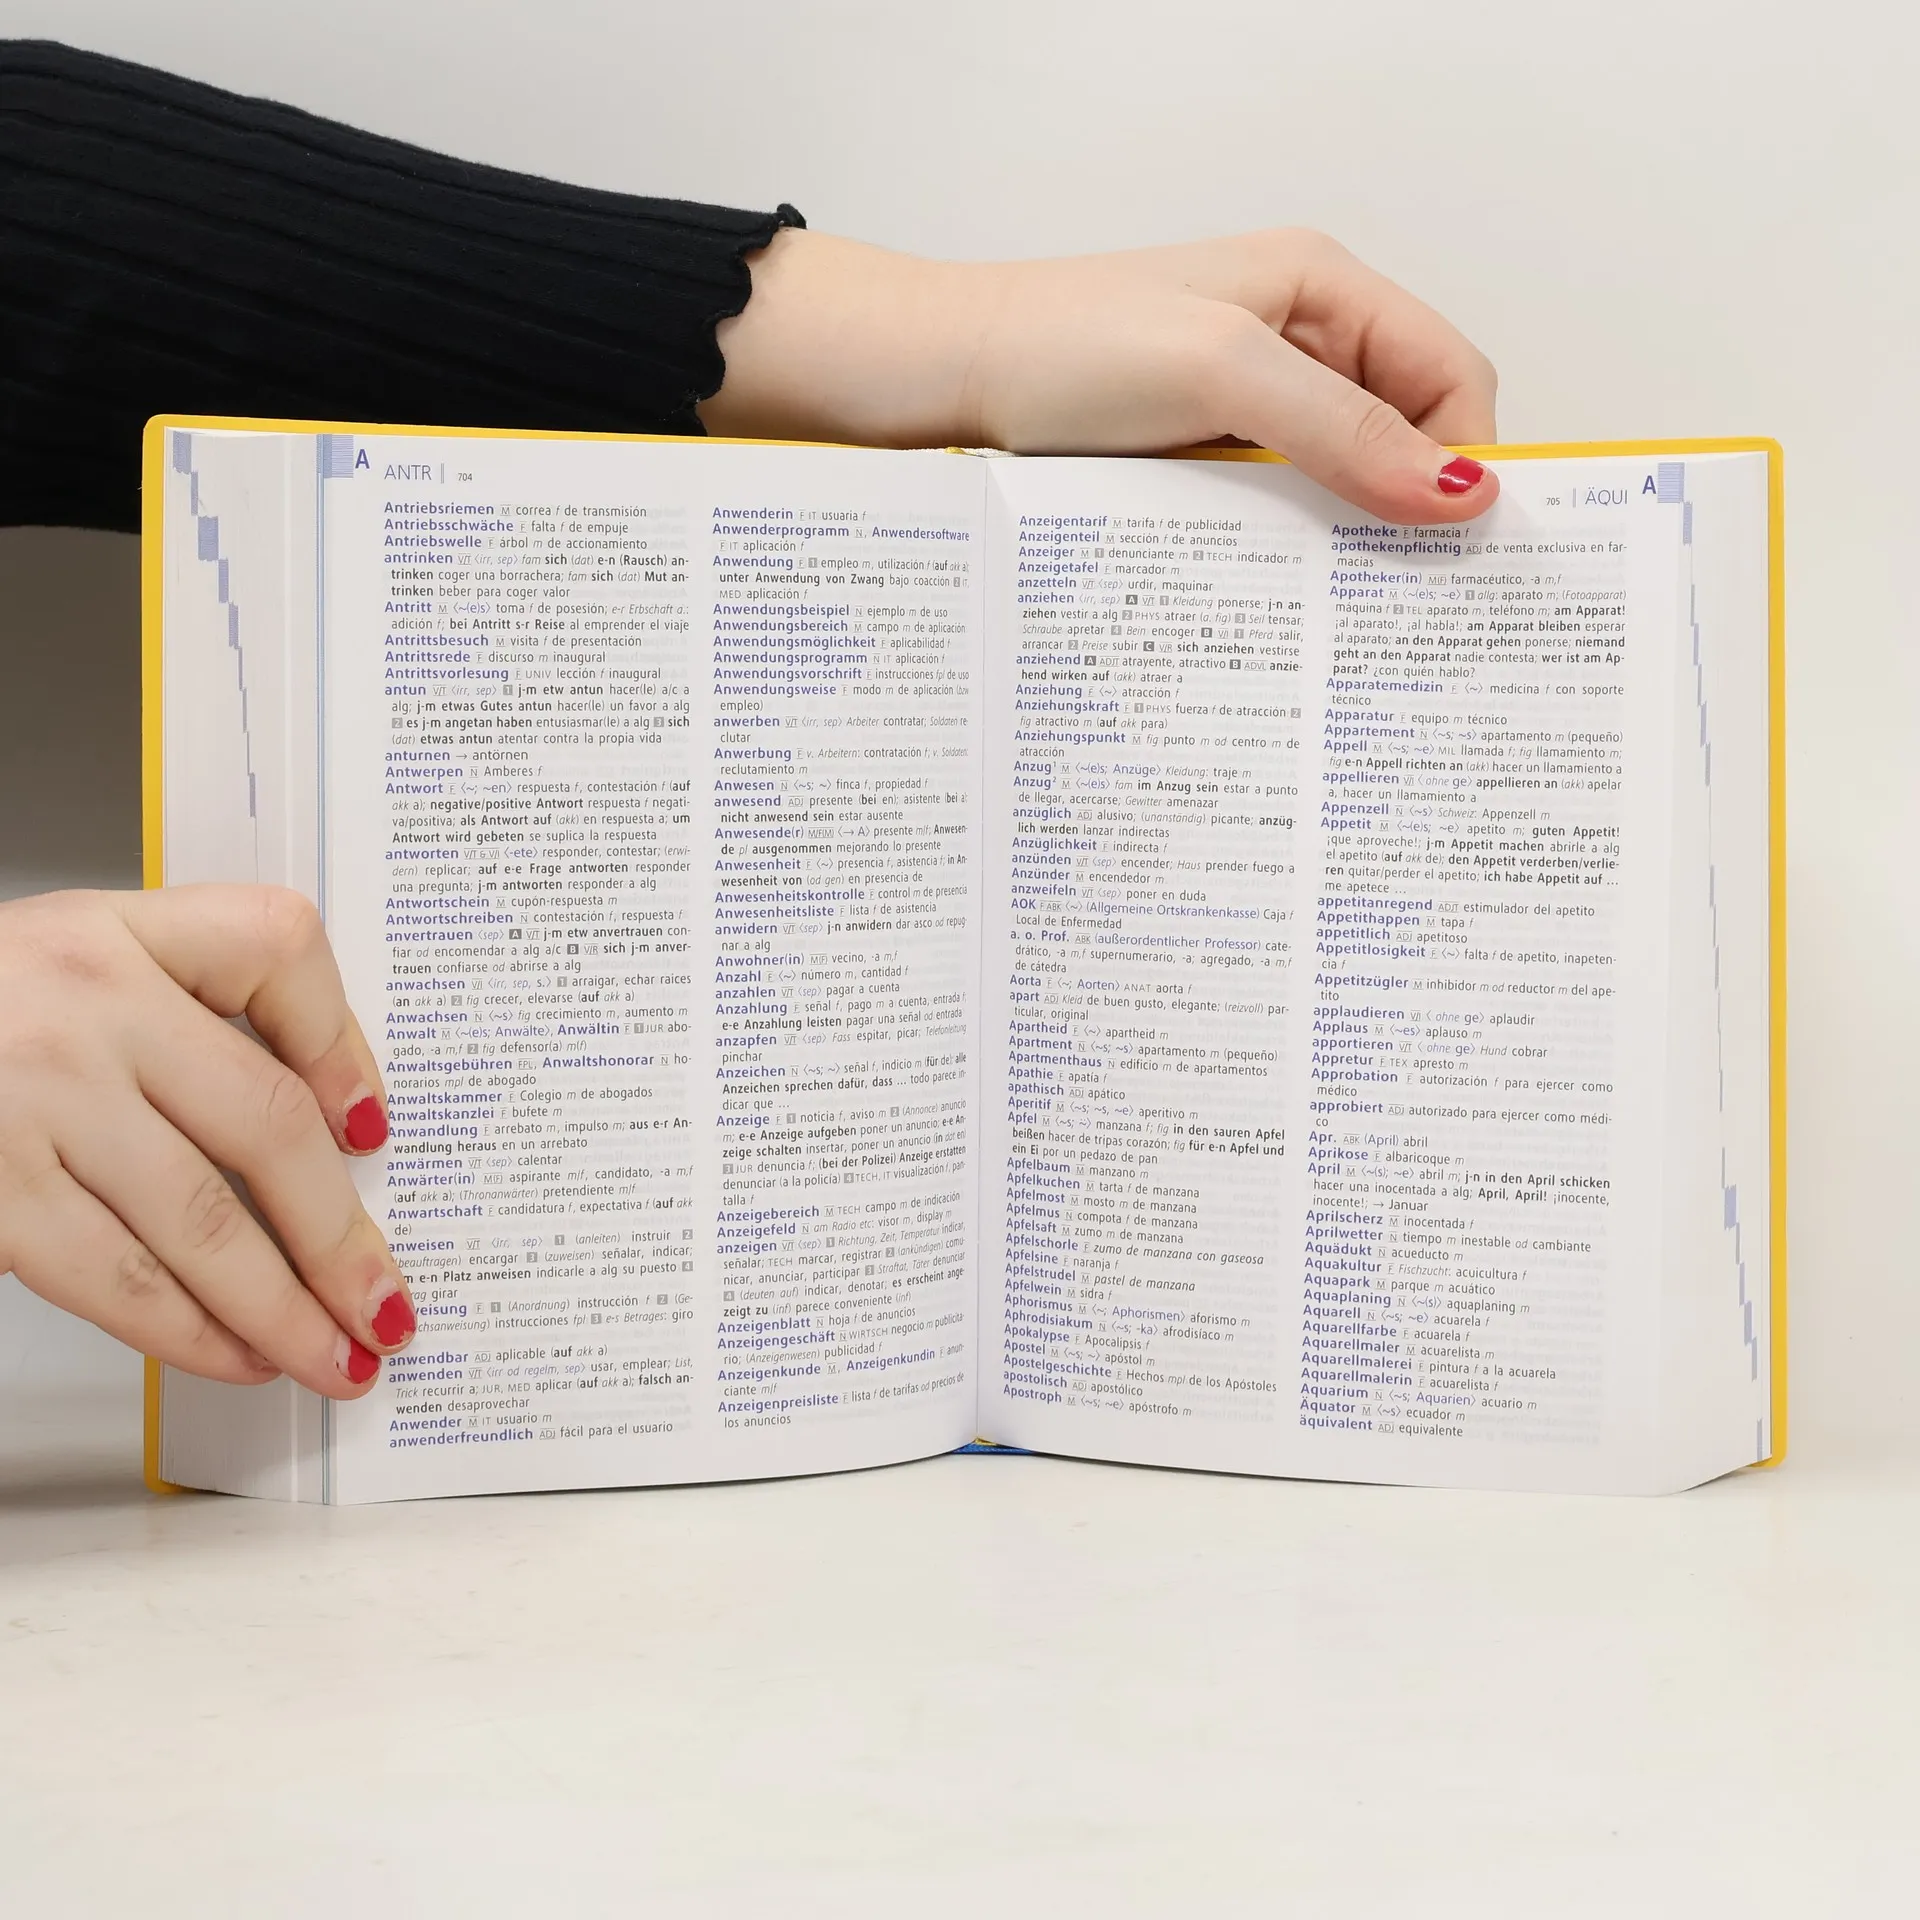 A ANTR | 704
Antriebsriemen M correa f de transmisión
Antriebsschwäche F falta f de empuje
Antriebswelle F árbol m de accionamiento
antrinken V/T ⟨irr, sep⟩ fam sich (dat) e-n (Rausch) an-
trinken coger una borrachera; fam sich (dat) Mut an-
trinken beber para coger valor
Antritt M ⟨~(e)s⟩ toma f de posesión; e-r Erbschaft a.:
adición f; bei Antritt s-r Reise al emprender el viaje
Antrittsbesuch M visita f de presentación
Antrittsrede F discurso m inaugural
Antrittsvorlesung F UNIV lección f inaugural
antun V/T ⟨irr, sep⟩ 1 j-m etw antun hacer(le) a/c a
alg; j-m etwas Gutes antun hacer(le) un favor a alg
2 es j-m angetan haben entusiasmar(le) a alg 3 sich
(dat) etwas antun atentar contra la propia vida
anturnen → antörnen
Antwerpen N Amberes f
Antwort F ⟨~; ~en⟩ respuesta f, contestación f (auf
akk a); negative/positive Antwort respuesta f negati-
va/positiva; als Antwort auf (akk) en respuesta a; um
Antwort wird gebeten se suplica la respuesta
antworten V/T & V/I ⟨-ete⟩ responder, contestar; (erwi-
dern) replicar; auf e-e Frage antworten responder
una pregunta; j-m antworten responder a alg
Antwortschein M cupón-respuesta m
Antwortschreiben N contestación f, respuesta f
anvertrauen ⟨sep⟩ A V/T j-m etw anvertrauen con-
fiar od encomendar a alg a/c B V/R sich j-m anver-
trauen confiarse od abrirse a alg
anwachsen V/I ⟨irr, sep, s.⟩ 1 arraigar, echar raíces
(an akk a) 2 fig crecer, elevarse (auf akk a)
Anwachsen N ⟨~s⟩ fig crecimiento m, aumento m
Anwalt M ⟨~(e)s; Anwälte⟩, Anwältin F 1 JUR abo-
gado, -a m,f 2 fig defensor(a) m(f)
Anwaltsgebühren FPL, Anwaltshonorar N ho-
norarios mpl de abogado
Anwaltskammer F Colegio m de abogados
Anwaltskanzlei F bufete m
Anwandlung F arrebato m, impulso m; aus e-r An-
wandlung heraus en un arrebato
anwärmen V/T ⟨sep⟩ calentar
Anwärter(in) M(F) aspirante m/f, candidato, -a m,f
(auf akk a); (Thronanwärter) pretendiente m/f
Anwartschaft F candidatura f, expectativa f (auf akk
de)
anweisen V/T ⟨irr, sep⟩ 1 (anleiten) instruir 2
(beauftragen) encargar 3 (zuweisen) señalar, indicar;
m e-n Platz anweisen indicarle a alg su puesto 4
rag girar
weisung F 1 (Anordnung) instrucción f 2 (Ge-
chsanweisung) instrucciones fpl 3 e-s Betrages: giro
anwendbar ADJ aplicable (auf akk a)
anwenden V/T ⟨irr od regelm, sep⟩ usar, emplear; List,
Trick recurrir a; JUR, MED aplicar (auf akk a); falsch an-
wenden desaprovechar
Anwender M IT usuario m
anwenderfreundlich ADJ fácil para el usuario
Anwenderin F IT usuaria f
Anwenderprogramm N, Anwendersoftware
F IT aplicación f
Anwendung F 1 empleo m, utilización f (auf akk a);
unter Anwendung von Zwang bajo coacción 2 IT,
MED aplicación f
Anwendungsbeispiel N ejemplo m de uso
Anwendungsbereich M campo m de aplicación
Anwendungsmöglichkeit F aplicabilidad f
Anwendungsprogramm N IT aplicación f
Anwendungsvorschrift F instrucciones fpl de uso
Anwendungsweise F modo m de aplicación (bzw
empleo)
anwerben V/T ⟨irr, sep⟩ Arbeiter contratar; Soldaten re-
clutar
Anwerbung F v. Arbeitern: contratación f; v. Soldaten:
reclutamiento m
Anwesen N ⟨~s; ~⟩ finca f, propiedad f
anwesend ADJ presente (bei en); asistente (bei a);
nicht anwesend sein estar ausente
Anwesende(r) M/F(M) ⟨→ A⟩ presente m/f; Anwesen-
de pl ausgenommen mejorando lo presente
Anwesenheit F ⟨~⟩ presencia f, asistencia f; in An-
wesenheit von (od gen) en presencia de
Anwesenheitskontrolle F control m de presencia
Anwesenheitsliste F lista f de asistencia
anwidern V/T ⟨sep⟩ j-n anwidern dar asco od repug-
nar a alg
Anwohner(in) M(F) vecino, -a m,f
Anzahl F ⟨~⟩ número m, cantidad f
anzahlen V/T ⟨sep⟩ pagar a cuenta
Anzahlung F señal f, pago m a cuenta, entrada f;
e-e Anzahlung leisten pagar una señal od entrada
anzapfen V/T ⟨sep⟩ Fass espitar, picar; Telefonleitung
pinchar
Anzeichen N ⟨~s; ~⟩ señal f, indicio m (für de); alle
Anzeichen sprechen dafür, dass ... todo parece in-
dicar que ...
Anzeige F 1 noticia f, aviso m 2 (Annonce) anuncio
m; e-e Anzeige aufgeben poner un anuncio; e-e An-
zeige schalten insertar, poner un anuncio (in dat en)
3 JUR denuncia f; (bei der Polizei) Anzeige erstatten
denunciar (a la policía) 4 TECH, IT visualización f, pan-
talla f
Anzeigebereich M TECH campo m de indicación
Anzeigefeld N am Radio etc: visor m, display m
anzeigen V/T ⟨sep⟩ 1 Richtung, Zeit, Temperatur indicar,
señalar; TECH marcar, registrar 2 (ankündigen) comu-
nicar, anunciar, participar 3 Straftat, Täter denunciar
4 (deuten auf) indicar, denotar; es erscheint ange-
zeigt zu (inf) parece conveniente (inf)
Anzeigenblatt N hoja f de anuncios
Anzeigengeschäft N WIRTSCH negocio m publicita-
rio; (Anzeigenwesen) publicidad f
Anzeigenkunde M, Anzeigenkundin F anun-
ciante m/f
Anzeigenpreisliste F lista f de tarifas od precios de
los anuncios
705 | ÄQUI A
Anzeigentarif M tarifa f de publicidad
Anzeigenteil M sección f de anuncios
Anzeiger M 1 denunciante m 2 TECH indicador m
Anzeigetafel F marcador m
anzetteln V/T ⟨sep⟩ urdir, maquinar
anziehen ⟨irr, sep⟩ A V/T 1 Kleidung ponerse; j-n an-
ziehen vestir a alg 2 PHYS atraer (a. fig) 3 Seil tensar;
Schraube apretar 4 Bein encoger B V/I 1 Pferd salir,
arrancar 2 Preise subir C V/R sich anziehen vestirse
anziehend A ADJT atrayente, atractivo B ADVL anzie-
hend wirken auf (akk) atraer a
Anziehung F ⟨~⟩ atracción f
Anziehungskraft F 1 PHYS fuerza f de atracción 2
fig atractivo m (auf akk para)
Anziehungspunkt M fig punto m od centro m de
atracción
Anzug¹ M ⟨~(e)s; Anzüge⟩ Kleidung: traje m
Anzug² M ⟨~(e)s⟩ fam im Anzug sein estar a punto
de llegar, acercarse; Gewitter amenazar
anzüglich ADJ alusivo; (unanständig) picante; anzüg-
lich werden lanzar indirectas
Anzüglichkeit F indirecta f
anzünden V/T ⟨sep⟩ encender; Haus prender fuego a
Anzünder M encendedor m
anzweifeln V/T ⟨sep⟩ poner en duda
AOK F ABK ⟨~⟩ (Allgemeine Ortskrankenkasse) Caja f
Local de Enfermedad
a. o. Prof. ABK (außerordentlicher Professor) cate-
drático, -a m,f supernumerario, -a; agregado, -a m,f
de cátedra
Aorta F ⟨~; Aorten⟩ ANAT aorta f
apart ADJ Kleid de buen gusto, elegante; (reizvoll) par-
ticular, original
Apartheid F ⟨~⟩ apartheid m
Apartment N ⟨~s; ~s⟩ apartamento m (pequeño)
Apartmenthaus N edificio m de apartamentos
Apathie F apatía f
apathisch ADJ apático
Aperitif M ⟨~s; ~s, ~e⟩ aperitivo m
Apfel M ⟨~s; ~⟩ manzana f; fig in den sauren Apfel
beißen hacer de tripas corazón; fig für e-n Apfel und
ein Ei por un pedazo de pan
Apfelbaum M manzano m
Apfelkuchen M tarta f de manzana
Apfelmost M mosto m de manzana
Apfelmus N compota f de manzana
Apfelsaft M zumo m de manzana
Apfelschorle F zumo de manzana con gaseosa
Apfelsine F naranja f
Apfelstrudel M pastel de manzana
Apfelwein M sidra f
Aphorismus M ⟨~; Aphorismen⟩ aforismo m
Aphrodisiakum N ⟨~s; -ka⟩ afrodisíaco m
Apokalypse F Apocalipsis f
Apostel M ⟨~s; ~⟩ apóstol m
Apostelgeschichte F Hechos mpl de los Apóstoles
apostolisch ADJ apostólico
Apostroph M ⟨~s; ~e⟩ apóstrofo m
Apotheke F farmacia f
apothekenpflichtig ADJ de venta exclusiva en far-
macias
Apotheker(in) M(F) farmacéutico, -a m,f
Apparat M ⟨~(e)s; ~e⟩ 1 allg: aparato m; (Fotoapparat)
máquina f 2 TEL aparato m, teléfono m; am Apparat!
¡al aparato!, ¡al habla!; am Apparat bleiben esperar
al aparato; an den Apparat gehen ponerse; niemand
geht an den Apparat nadie contesta; wer ist am Ap-
parat? ¿con quién hablo?
Apparatemedizin F ⟨~⟩ medicina f con soporte
técnico
Apparatur F equipo m técnico
Appartement N ⟨~s; ~s⟩ apartamento m (pequeño)
Appell M ⟨~s; ~e⟩ MIL llamada f; fig llamamiento m;
fig e-n Appell richten an (akk) hacer un llamamiento a
appellieren V/I ⟨ohne ge⟩ appellieren an (akk) apelar
a, hacer un llamamiento a
Appenzell N ⟨~s⟩ Schweiz: Appenzell m
Appetit M ⟨~(e)s; ~e⟩ apetito m; guten Appetit!
¡que aproveche!; j-m Appetit machen abrirle a alg
el apetito (auf akk de); den Appetit verderben/verlie-
ren quitar/perder el apetito; ich habe Appetit auf ...
me apetece ...
appetitanregend ADJT estimulador del apetito
Appetithappen M tapa f
appetitlich ADJ apetitoso
Appetitlosigkeit F ⟨~⟩ falta f de apetito, inapeten-
cia f
Appetitzügler M inhibidor m od reductor m del ape-
tito
applaudieren V/I ⟨ohne ge⟩ aplaudir
Applaus M ⟨~es⟩ aplauso m
apportieren V/T ⟨ohne ge⟩ Hund cobrar
Appretur F TEX apresto m
Approbation F autorización f para ejercer como
médico
approbiert ADJ autorizado para ejercer como médi-
co
Apr. ABK (April) abril
Aprikose F albaricoque m
April M ⟨~(s); ~e⟩ abril m; j-n in den April schicken
hacer una inocentada a alg; April, April! ¡inocente,
inocente!; → Januar
Aprilscherz M inocentada f
Aprilwetter N tiempo m inestable od cambiante
Aquädukt N acueducto m
Aquakultur F Fischzucht: acuicultura f
Aquapark M parque m acuático
Aquaplaning N ⟨~(s)⟩ aquaplaning m
Aquarell N ⟨~s; ~e⟩ acuarela f
Aquarellfarbe F acuarela f
Aquarellmaler M acuarelista m
Aquarellmalerei F pintura f a la acuarela
Aquarellmalerin F acuarelista f
Aquarium N ⟨~s; Aquarien⟩ acuario m
Äquator M ⟨~s⟩ ecuador m
äquivalent ADJ equivalente